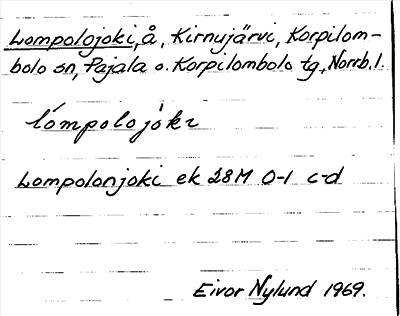 Lompolojoki, å, Kirnujärvi, Korpilom-
bolo sn, Pajala o. Korpilombolo tg, Norrb. l.
lómpolojòkı
Lompolonjoki ek 28M 0-1 c-d
Eivor Nylund 1969.